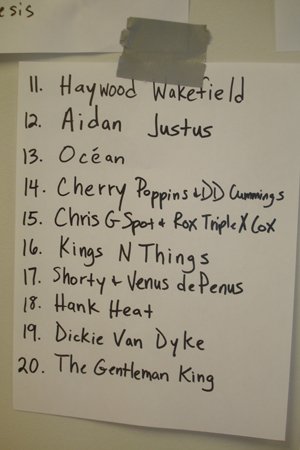 esis
11. Haywood Wakefield
12. Aidan Justus
13. Océan
14. Cherry Poppins & DD Cummings
15. Chris G Spot & Rox Triple X Cox
16. Kings N Things
17. Shorty & Venus de Penus
18. Hank Heat
19. Dickie Van Dyke
20. The Gentleman King